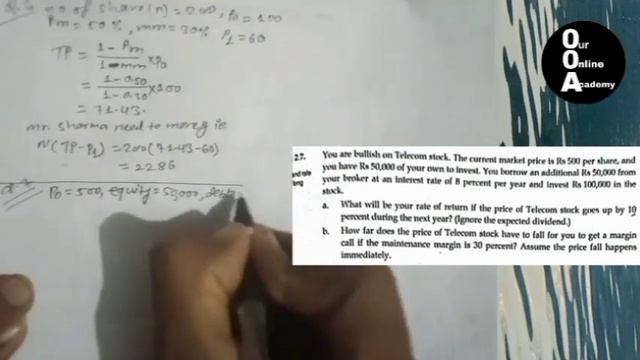 no of share (n) = 200, P0 = 100
Pm = 50%, mm = 30% P1 = 60
TP = 1 - Pm / 1 - mm × P0
= 1 - 0.50 / 1 - 0.30 × 100
= 71.43.
mr. sharma need to money ie
n(TP - P1) = 200(71.43 - 60)
= 2286
P0 = 500, equity = 50,000, debt
Our
Online
Academy
27. You are bullish on Telecom stock. The current market price is Rs 500 per share, and
you have Rs 50,000 of your own to invest. You borrow an additional Rs 50,000 from
your broker at an interest rate of 8 percent per year and invest Rs 100,000 in the
stock.
a. What will be your rate of return if the price of Telecom stock goes up by 10
percent during the next year? (Ignore the expected dividend.)
b. How far does the price of Telecom stock have to fall for you to get a margin
call if the maintenance margin is 30 percent? Assume the price fall happens
immediately.